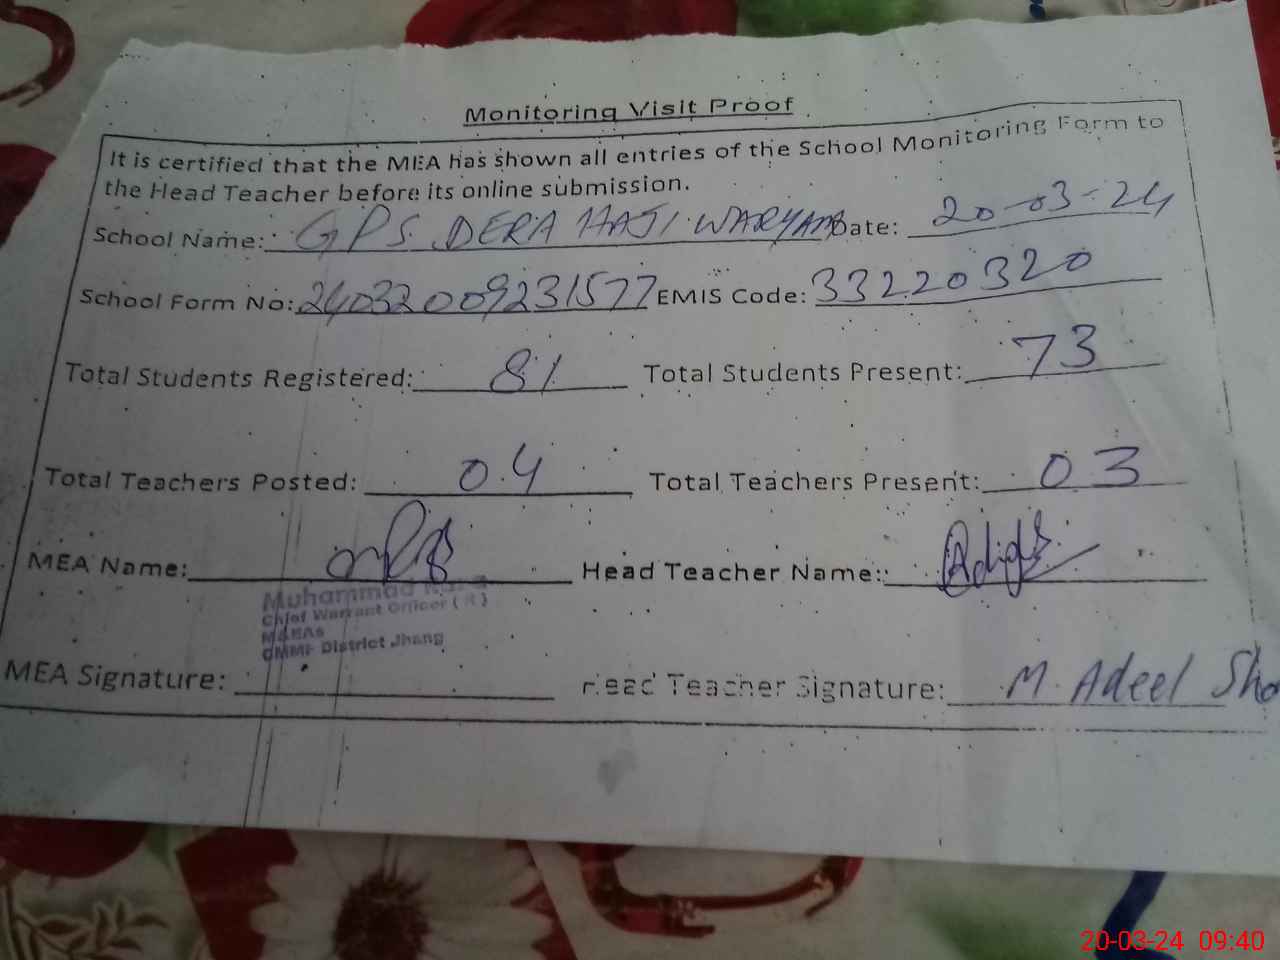 Monitoring Visit Proof
It is certified that the MEA has shown all entries of the School Monitoring Form to
the Head Teacher before its online submission.
School Name: GPS DERA HAJI WARYAM Date: 20-03-24
School Form No: 240320009231577 EMIS Code: 33220320
Total Students Registered: 81 Total Students Present: 73
Total Teachers Posted: 04 Total Teachers Present: 03
MEA Name: Head Teacher Name:
Muhammad
Chief Warrant Officer (R)
MEAs
CMMF District Jhang
MEA Signature: Head Teacher Signature: M. Adeel Sho
20-03-24 09:40